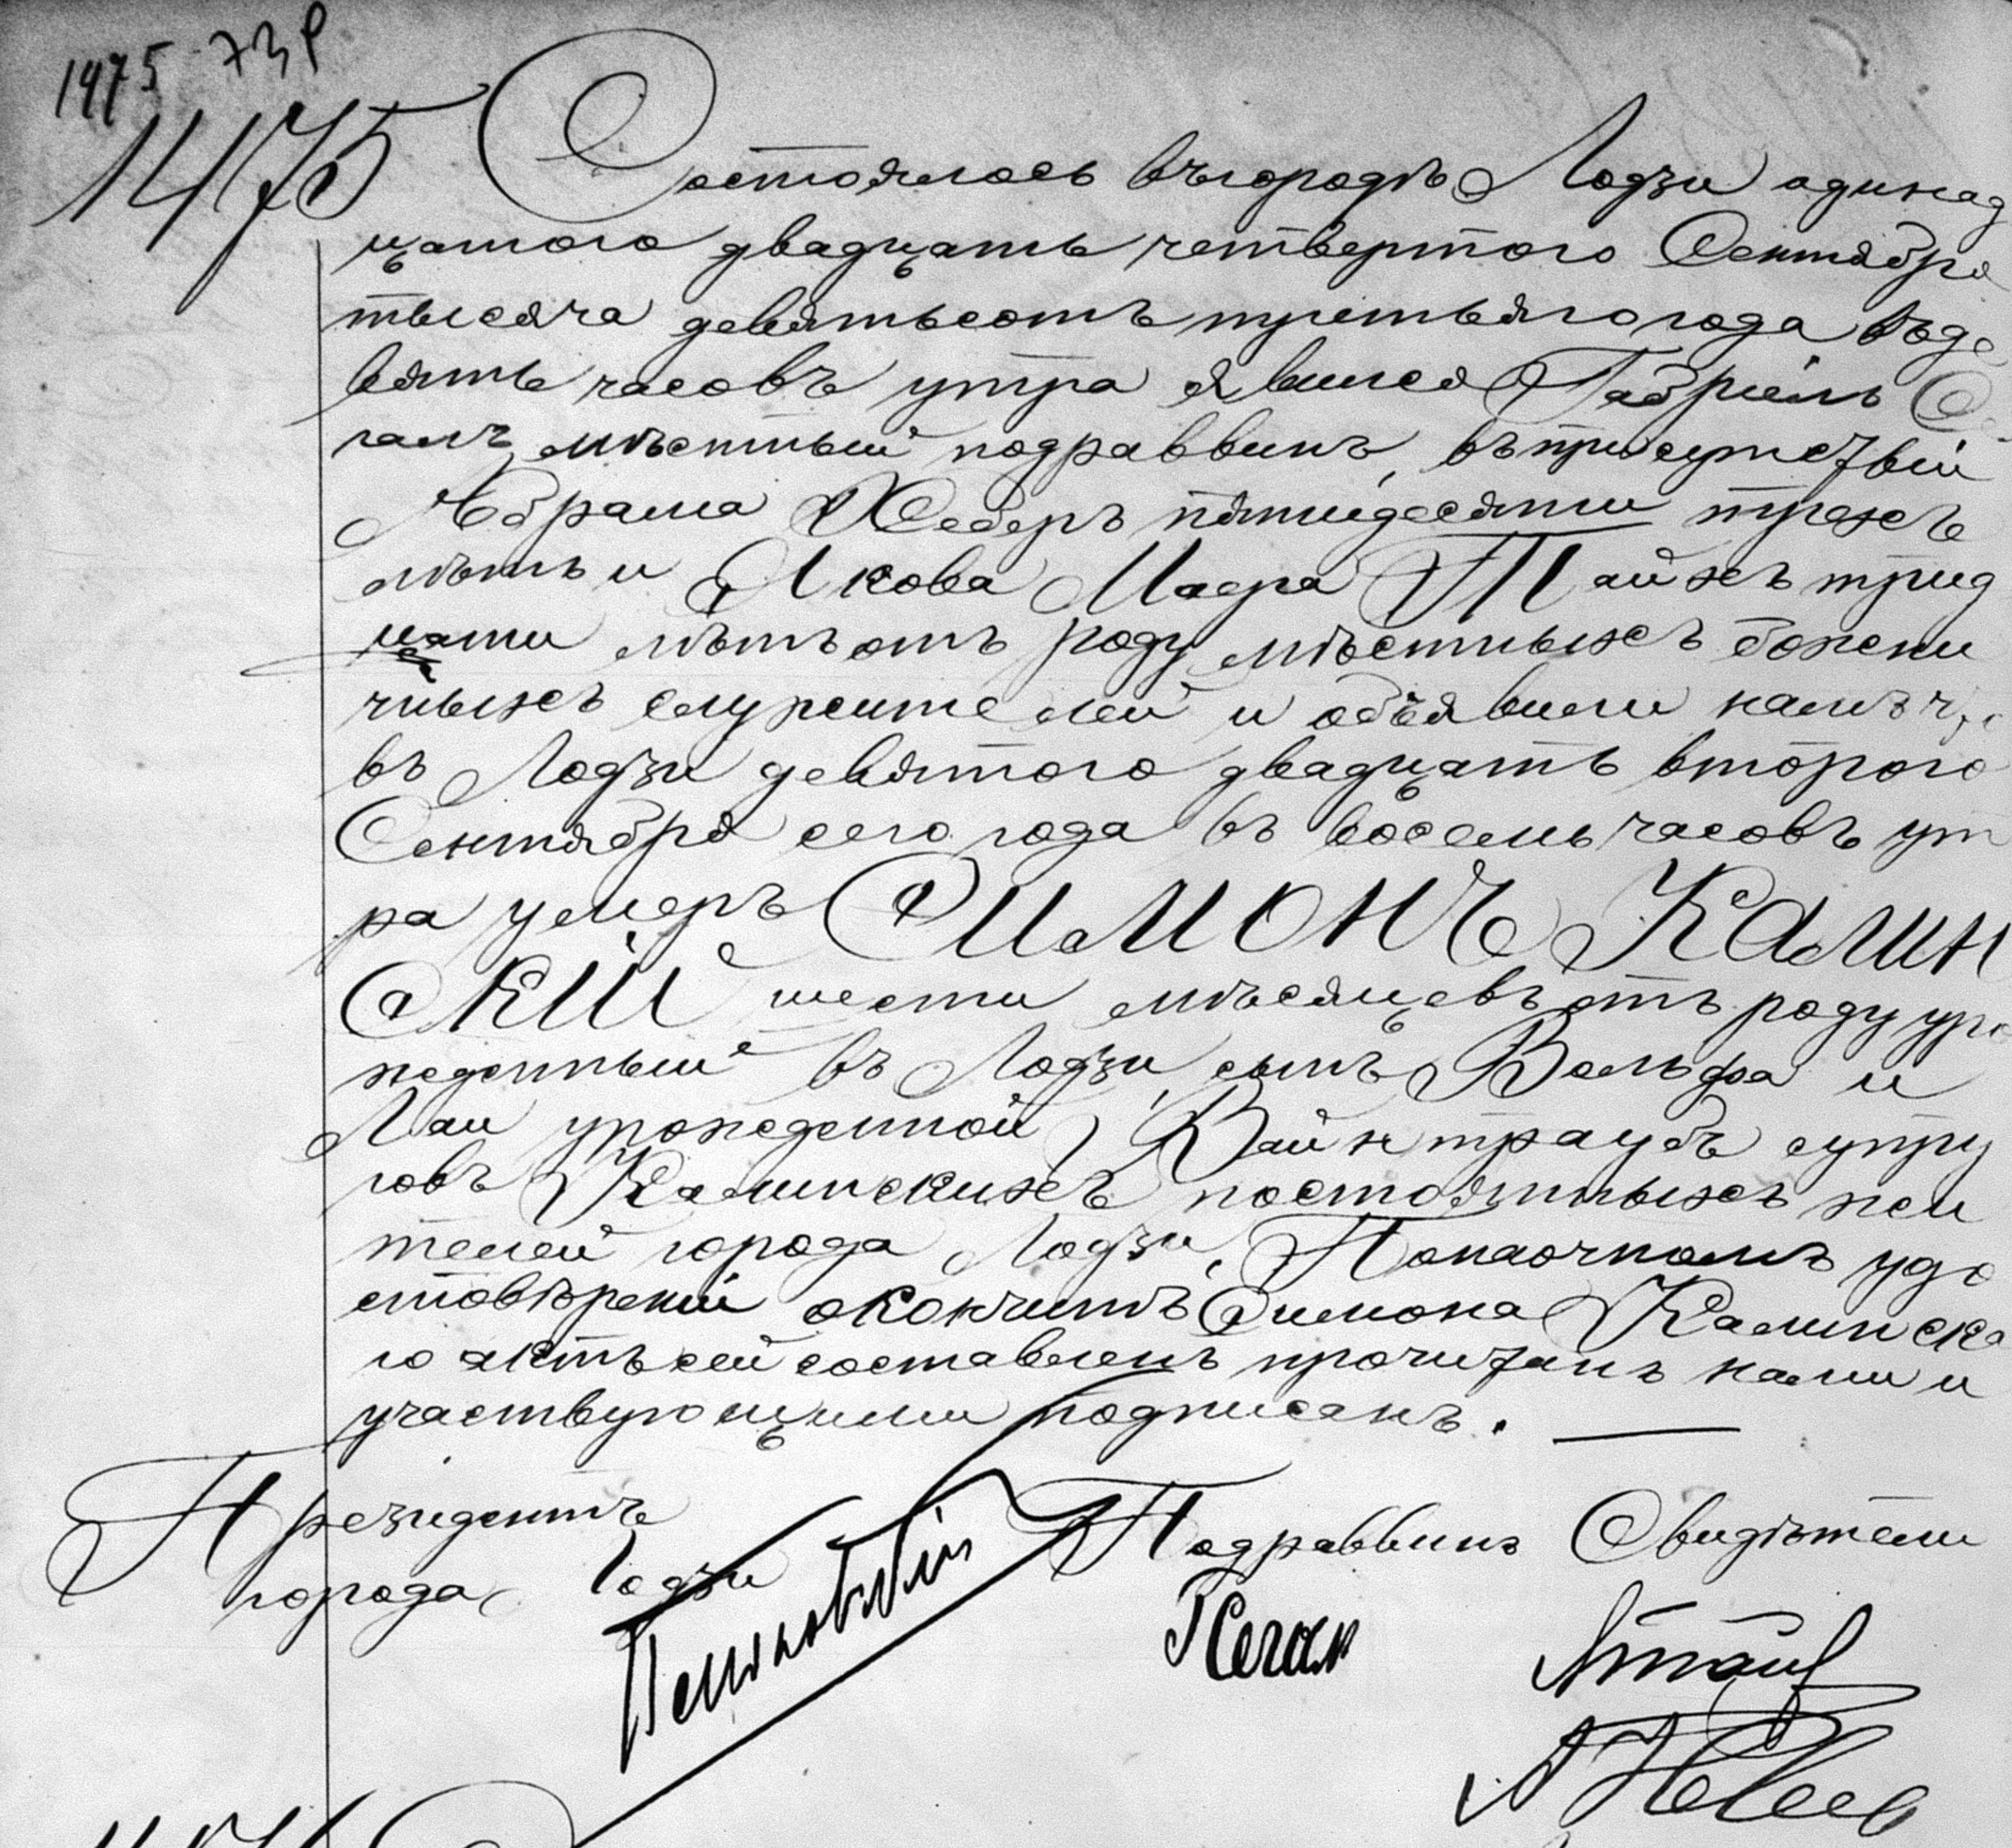 1475
1475
Состоялось въ городѣ Лодзи одинад
цатого двадцать четвертого Сентября
тысяча девятьсотъ третьяго года въ де
вять часовъ утра явился Габріель Се
галъ мѣстный подраввинъ, въ присутствіи
Абрама Хеберъ пятидесяти трехъ
лѣтъ и Якова Маера Тайхъ трид
цати лѣтъ отъ роду мѣстныхъ божни
чныхъ служителей и объявили намъ что
въ Лодзи девятого двадцать второго
Сентября сего года въ восемь часовъ ут
ра умеръ Симонъ Калин
скій шести мѣсяцевъ отъ роду уро
жденный въ Лодзи, сынъ Вольфа и
Лаи урожденной Вайнтраубъ супру
говъ Калинскихъ постоянныхъ жи
телей города Лодзи. По наочномъ удо
стовѣреніи о кончинѣ Симона Калинска
го актъ сей составленъ прочитанъ нами и
участвующими подписанъ.
Президентъ Подраввинъ Свидѣтели
города Лодзи
Пеньковскій
ГСегал